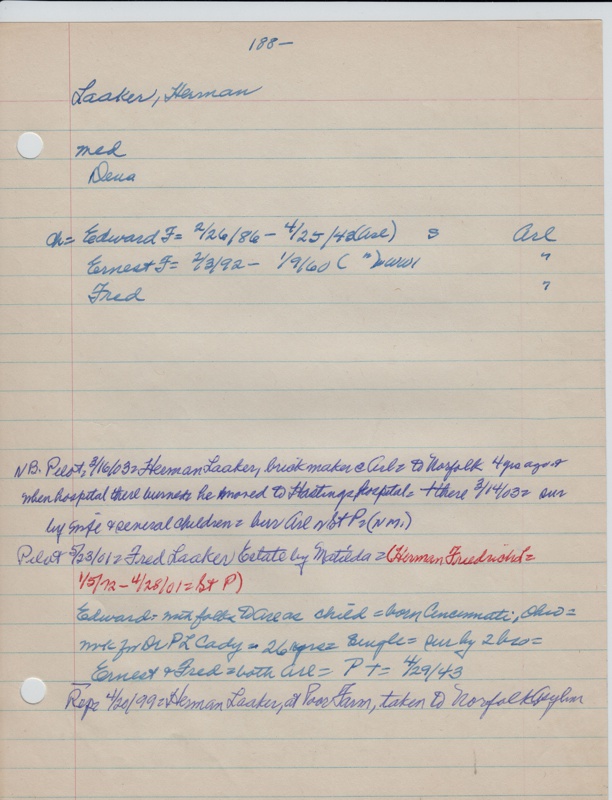 188-
Laaker, Herman
med
Dena
ch= Edward F= 2/26/86 - 4/25/43 (Arl) s Arl
Ernest F= 2/3/92 - 1/9/60 ( " ) "
Fred "
NB. Pilot, 3/16/03= Herman Laaker, brick maker Arl= to Norfolk 4 yrs ago &
when hospital there burned he moved to Hastings hospital= + there 3/14/03= sur
by wife & several children= bur Arl
Pilot 5/23/01= Fred Laaker Estate by Matilda= (Herman Friedrich=
1/5/72-4/28/01= St P)
Edward= folks to as child= born Cincinnati, Ohio=
wk for Dr P L Cady= 26 yrs= single= sur by 2 bro=
Ernest & Fred= both Arl= P T= 4/29/43
Rep= 4/20/99= Herman Laaker, at Poor Farm, taken to Norfolk Asylum